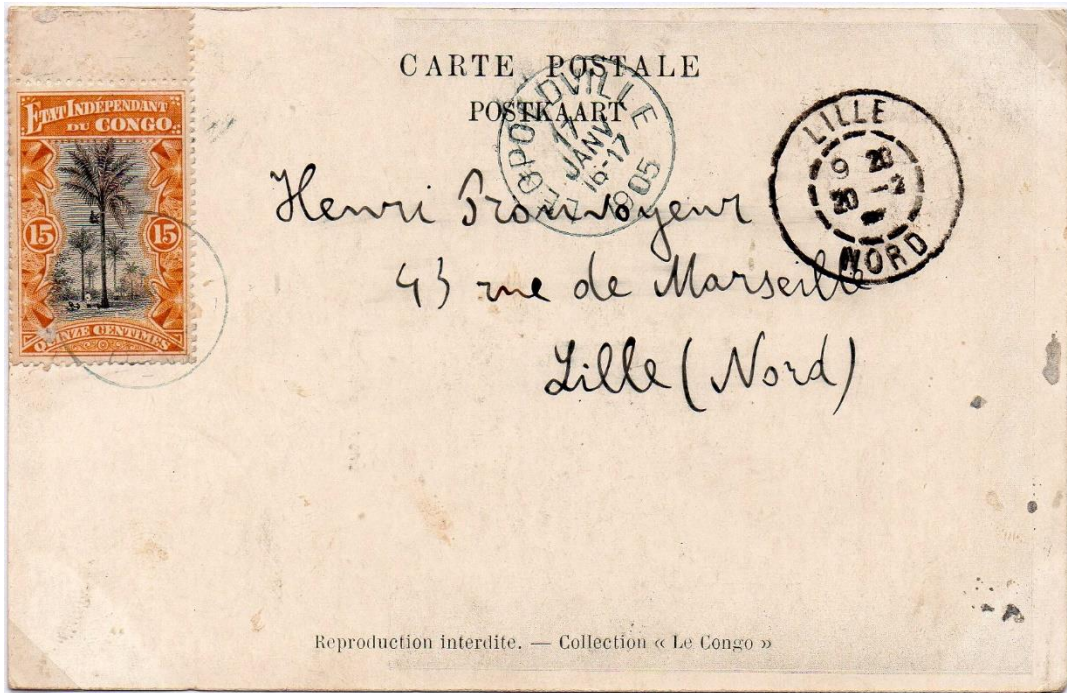 CARTE POSTALE
POSTKAART
ETAT INDÉPENDANT
DU CONGO
15 15
QUINZE CENTIMES
LEOPOLDVILLE
17
JANV
16-17
1905
LILLE
9 20
20 -2
NORD
Henri
43 rue de Marseille
Lille (Nord)
Reproduction interdite. — Collection « Le Congo »